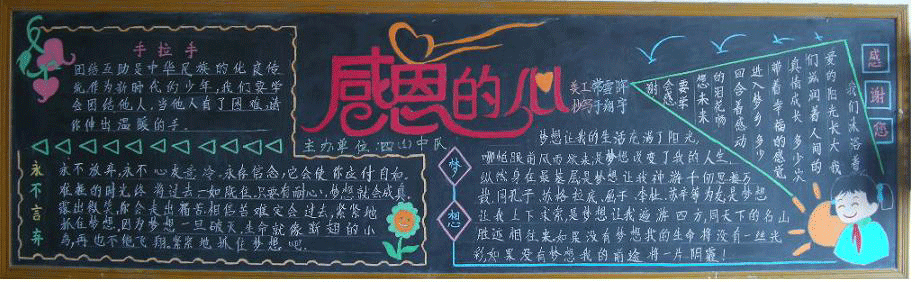 手拉手
团结互助是中华民族的优良传
统作为新时代的少年,我们要学
会团结他人,当他人有了困难,请
你伸出温暖的手。
永不言弃
永不放弃,永不心灰意冷。永存信念,它会使你应付自如。
难熬的时光终将过去一如既往,只要有耐心,梦想就会成真。
露出微笑,你会走出痛苦,相信苦难定会过去,紧紧地
抓住梦想,因为梦想一旦破灭,生命就像断翅的小
鸟,再也不能飞翔,紧紧地抓住梦想吧。
感恩的心
美工
抄写于翔宇
主办单位:四(1)中队
梦想
梦想让我的生活充满了阳光,
哪怕眼前风雨欲来,是梦想改变了我的人生,
纵然身在是梦想让我神游千仞思接万
载,同孔子、苏格拉底、屈子、李杜、苏辛等为友,是梦想
让我上下求索,是梦想让我遨游四方,同天下的名山
胜迹相往来,如果没有梦想我的生命将没有一丝光
彩,如果没有梦想我的前途将一片阴霾!
感谢您
我们沐浴着
爱的阳光长大我
们滋润着人间的
真情成长多少次
带着幸福的感觉
进入梦乡多少
回含着感动
的泪花畅
想未来
要学
会感
谢